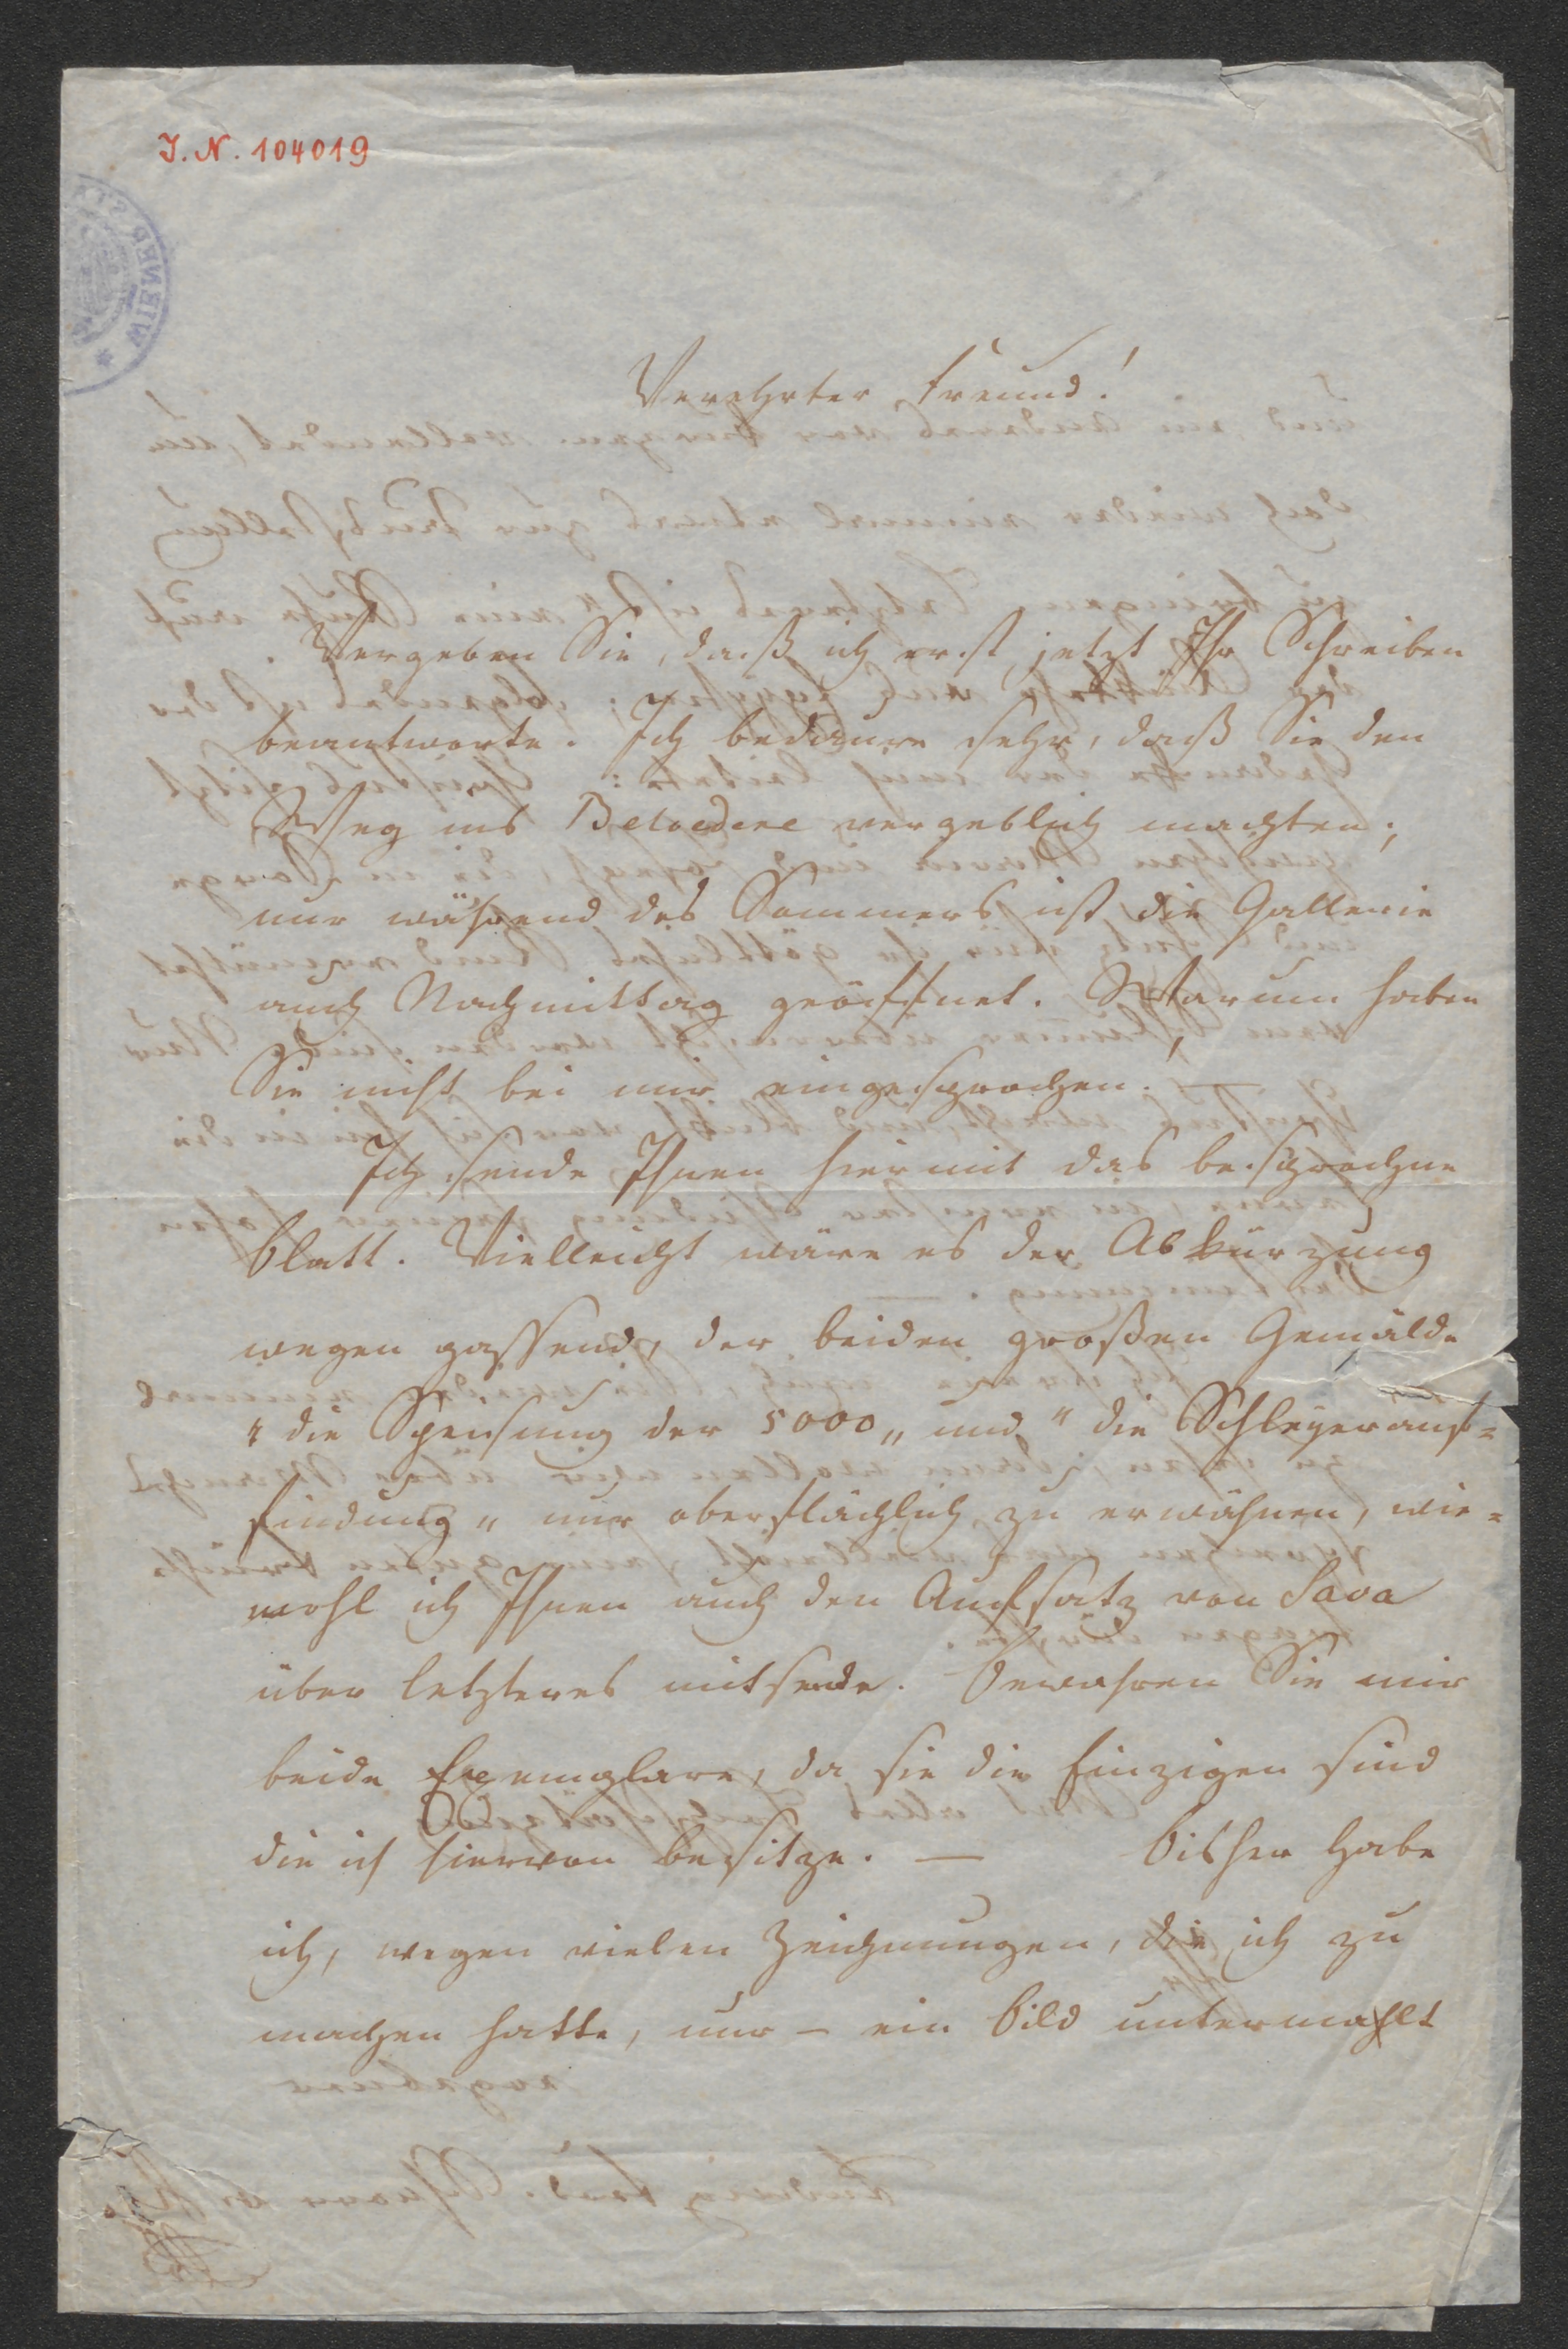 J. N. 104019
WIENER
Verehrter Freund!
Vergeben Sie, daß ich erst jetzt Ihr Schreiben
beantworte. Ich bedaure sehr, daß Sie den
Weg ins Belvedere vergeblich machten;
nur während des Sommers ist die Gallerie
auch Nachmittag geöffnet. Warum haben
Sie nicht bei mir eingesprochen. —
Ich sende Ihnen hiermit das besprochne
Blatt. Vielleicht wäre es der Abkürzung
wegen passend, der beiden großen Gemälde
"die Speisung der 5000„ und "die Schleyerauf=
findung„ nur oberflächlich zu erwähnen, wie=
wohl ich Ihnen auch den Aufsatz von Sava
über letzteres mitsende. Bewahren Sie mir
beide Exemplare, da sie die Einzigen sind
die ich hiervon besitze. — Bisher habe
ich, wegen vielen Zeichnungen, die ich zu
machen hatte, nur – ein Bild untermahlt